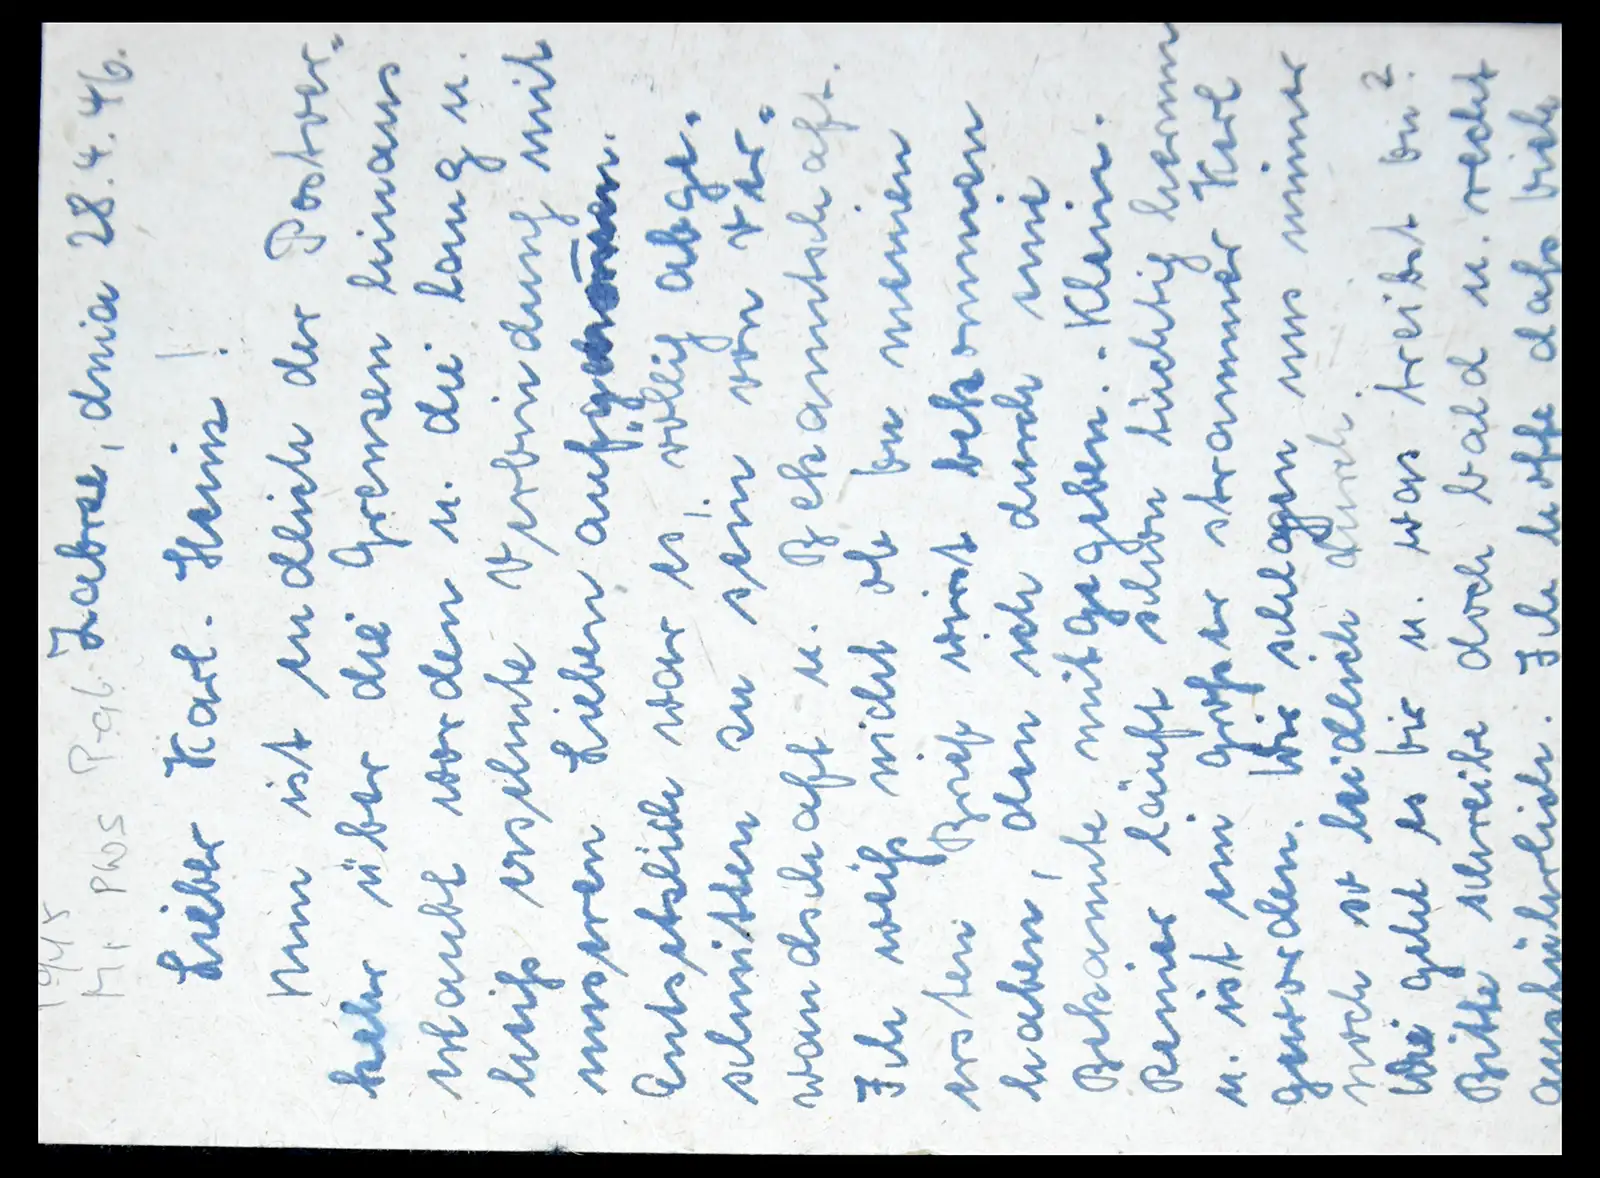 1945
Zabrze, dnia 28.4.46.
Lieber Karl-Heinz!
Nun ist endlich der Postver-
kehr über die Grenzen hinaus
erlaubt worden u. die lang u.
heiß ersehnte Verbindung mit
unseren Lieben aufgenommen.
Entsetzlich war es, völlig abge-
schnitten zu sein von Ver-
wandschaft u. Bekanntschaft.
Ich weiß nicht ob Du meinen
ersten Brief wirst bekommen
haben, den ich durch eine
Bekannte mitgegeben. Klein-
Reiner läuft schon tüchtig herum
u. ist ein großer strammer Kerl
geworden. Wir schlagen uns immer
noch so leidlich durch.
Wie geht es Dir u. was treibst Du?
Bitte schreibe doch bald u. recht
ausführlich. Ich hoffe daß Dich